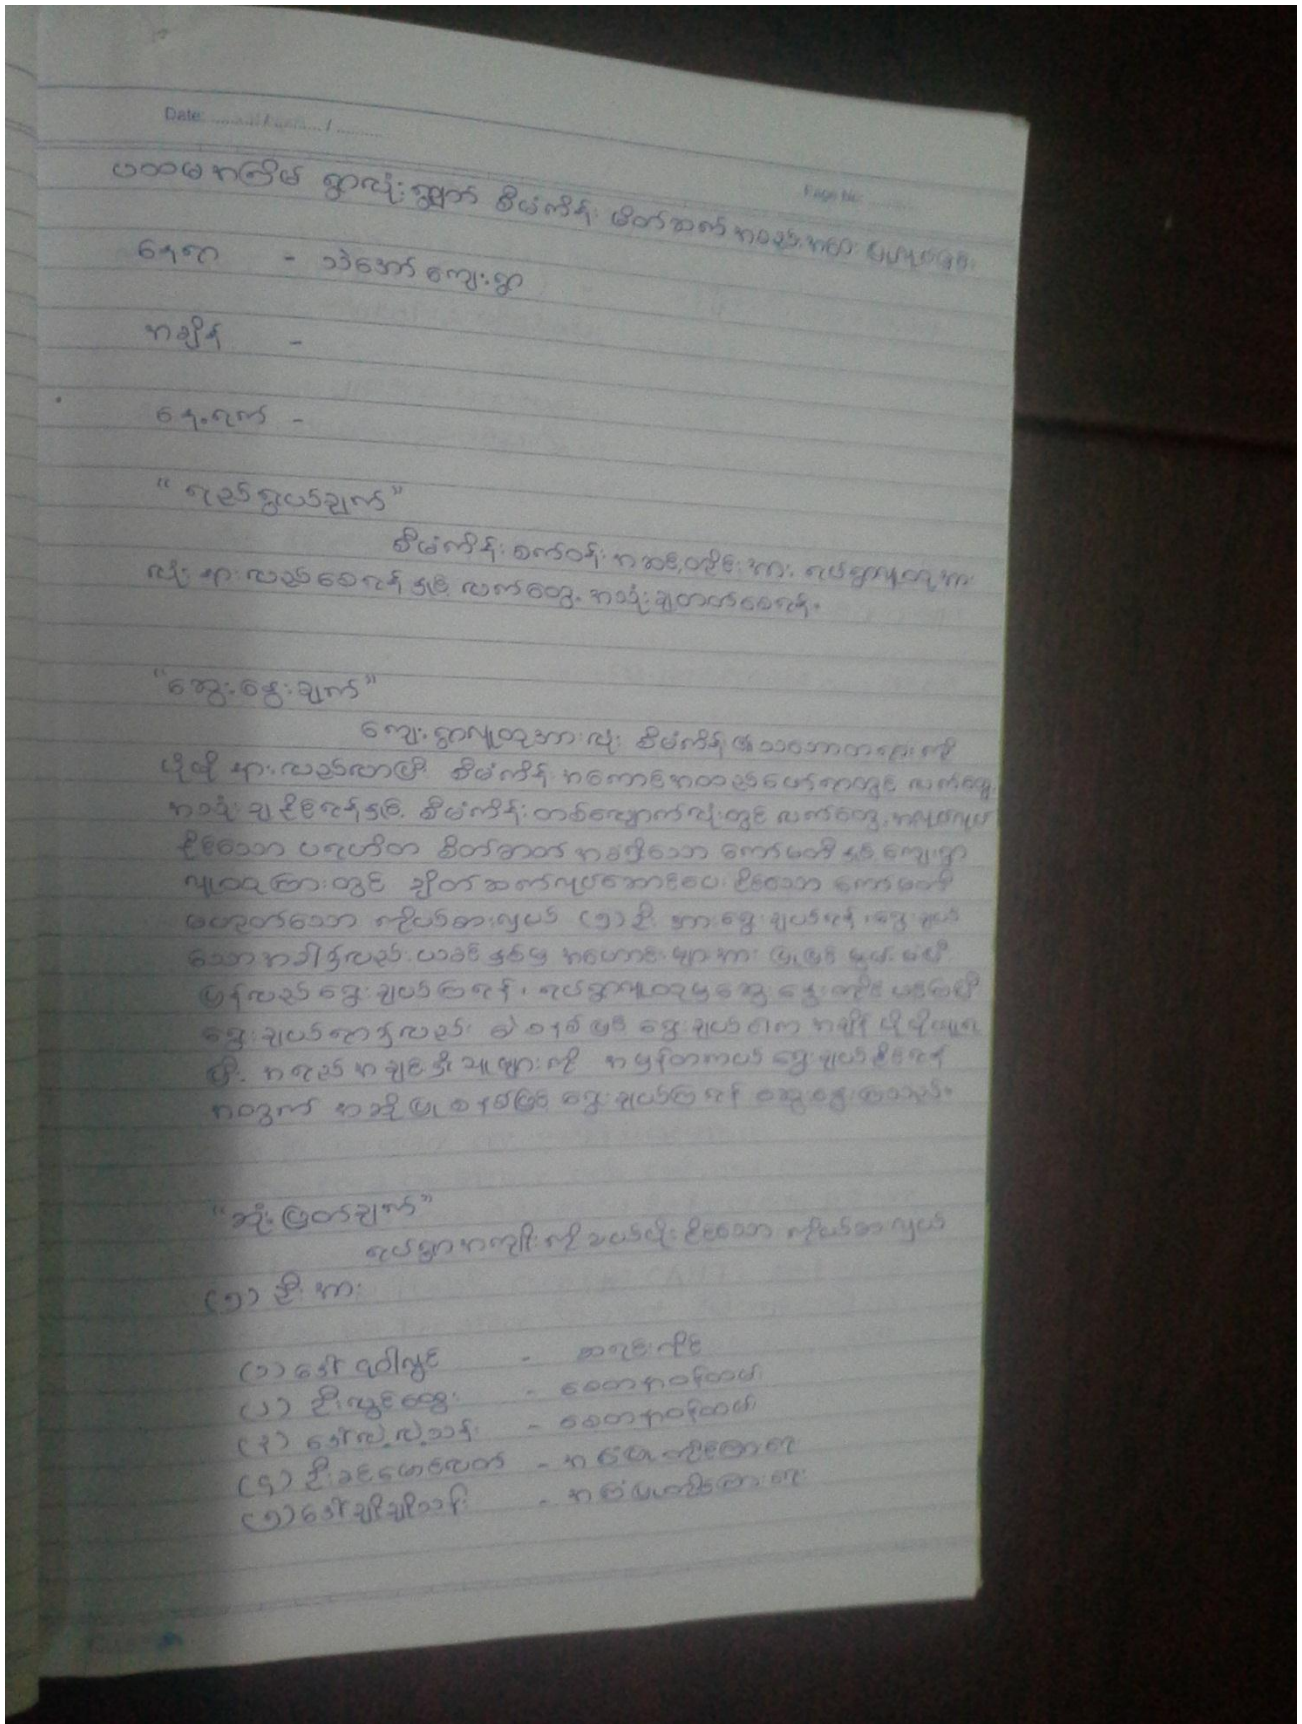 Date: ......../......../........
Page No:
ပထမအကြိမ် ရွာလုံးကျွတ် စီမံကိန်း မိတ်ဆက် အစည်းအဝေး
နေရာ - သဲအော်ကျေးရွာ
အချိန် -
နေ့ရက် -
"ရည်ရွယ်ချက်"
စီမံကိန်း စက်ဝန်း အဆင့်တိုင်းအား ရပ်ရွာလူထုအား
လုံး နားလည်စေရန်နှင့် လက်တွေ့ အသုံးချတတ်စေရန်။
"ဆွေးနွေးချက်"
ကျေးရွာလူထုအားလုံး စီမံကိန်း၏သဘောတရားကို
ပိုမို နားလည်လာပြီး စီမံကိန်း အကောင်အထည်ဖော်ရာတွင် လက်တွေ့
အသုံးချနိုင်ရန်နှင့် စီမံကိန်း တစ်လျှောက်လုံးတွင် လက်တွေ့ အလုပ်လုပ်
နိုင်သော ပရဟိတ စိတ်ဓာတ် အရှိသော ကော်မတီနှင့် ကျေးရွာ
လူထုကြားတွင် ချိတ်ဆက်လုပ်ဆောင်ပေးနိုင်သော ကော်မတီ
မဟုတ်သော ကိုယ်စားလှယ် (၅) ဦးအား ရွေးချယ်ရန်၊ ရွေးချယ်
သောအခါ၌လည်း ယခင်နှစ်မှ အဟောင်းများအား
ပြန်လည်ရွေးချယ်ကြရန်၊ ရပ်ရွာလူထုမှ ဆွေးနွေး
ရွေးချယ်ရာ၌လည်း မဲစနစ်ဖြင့် ရွေးချယ်ပါက အချိန်ပိုမိုယူရ
ပြီး အရည်အချင်းရှိသူများကို အမှန်တကယ် ရွေးချယ်နိုင်ရန်
အတွက် အဆိုပြုစနစ်ဖြင့် ရွေးချယ်ကြရန် ဆွေးနွေးကြသည်။
"ဆုံးဖြတ်ချက်"
ရပ်ရွာအကျိုးကို သယ်ပိုးနိုင်သော ကိုယ်စားလှယ်
(၅) ဦးအား
(၁) ဒေါ်ဝါလွင် - စာရင်းကိုင်
(၂) ဦးလွင်ထွေး - စေတနာ့ဝန်ထမ်း
(၃) ဒေါ်လှလှသန်း - စေတနာ့ဝန်ထမ်း
(၄) ဦးခင်မောင်လတ် - အစီရင်ခံတိုင်ကြားရေး
(၅) ဒေါ်ချိုချိုသန်း - အစီရင်ခံတိုင်ကြားရေး